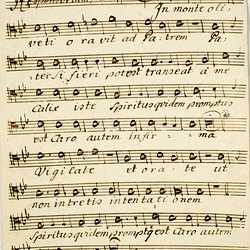 Responsorium.
In monte oli:
veti o ra vit ad Pa: trem Pa:
ter si fieri potest transeat a me
Calix iste Spiritus quidem promptus
est Caro autem infir :: ma
Vigilate et ora: te ut
non intretis in tentati onem
Spiritus quidem promptq est Caro autem